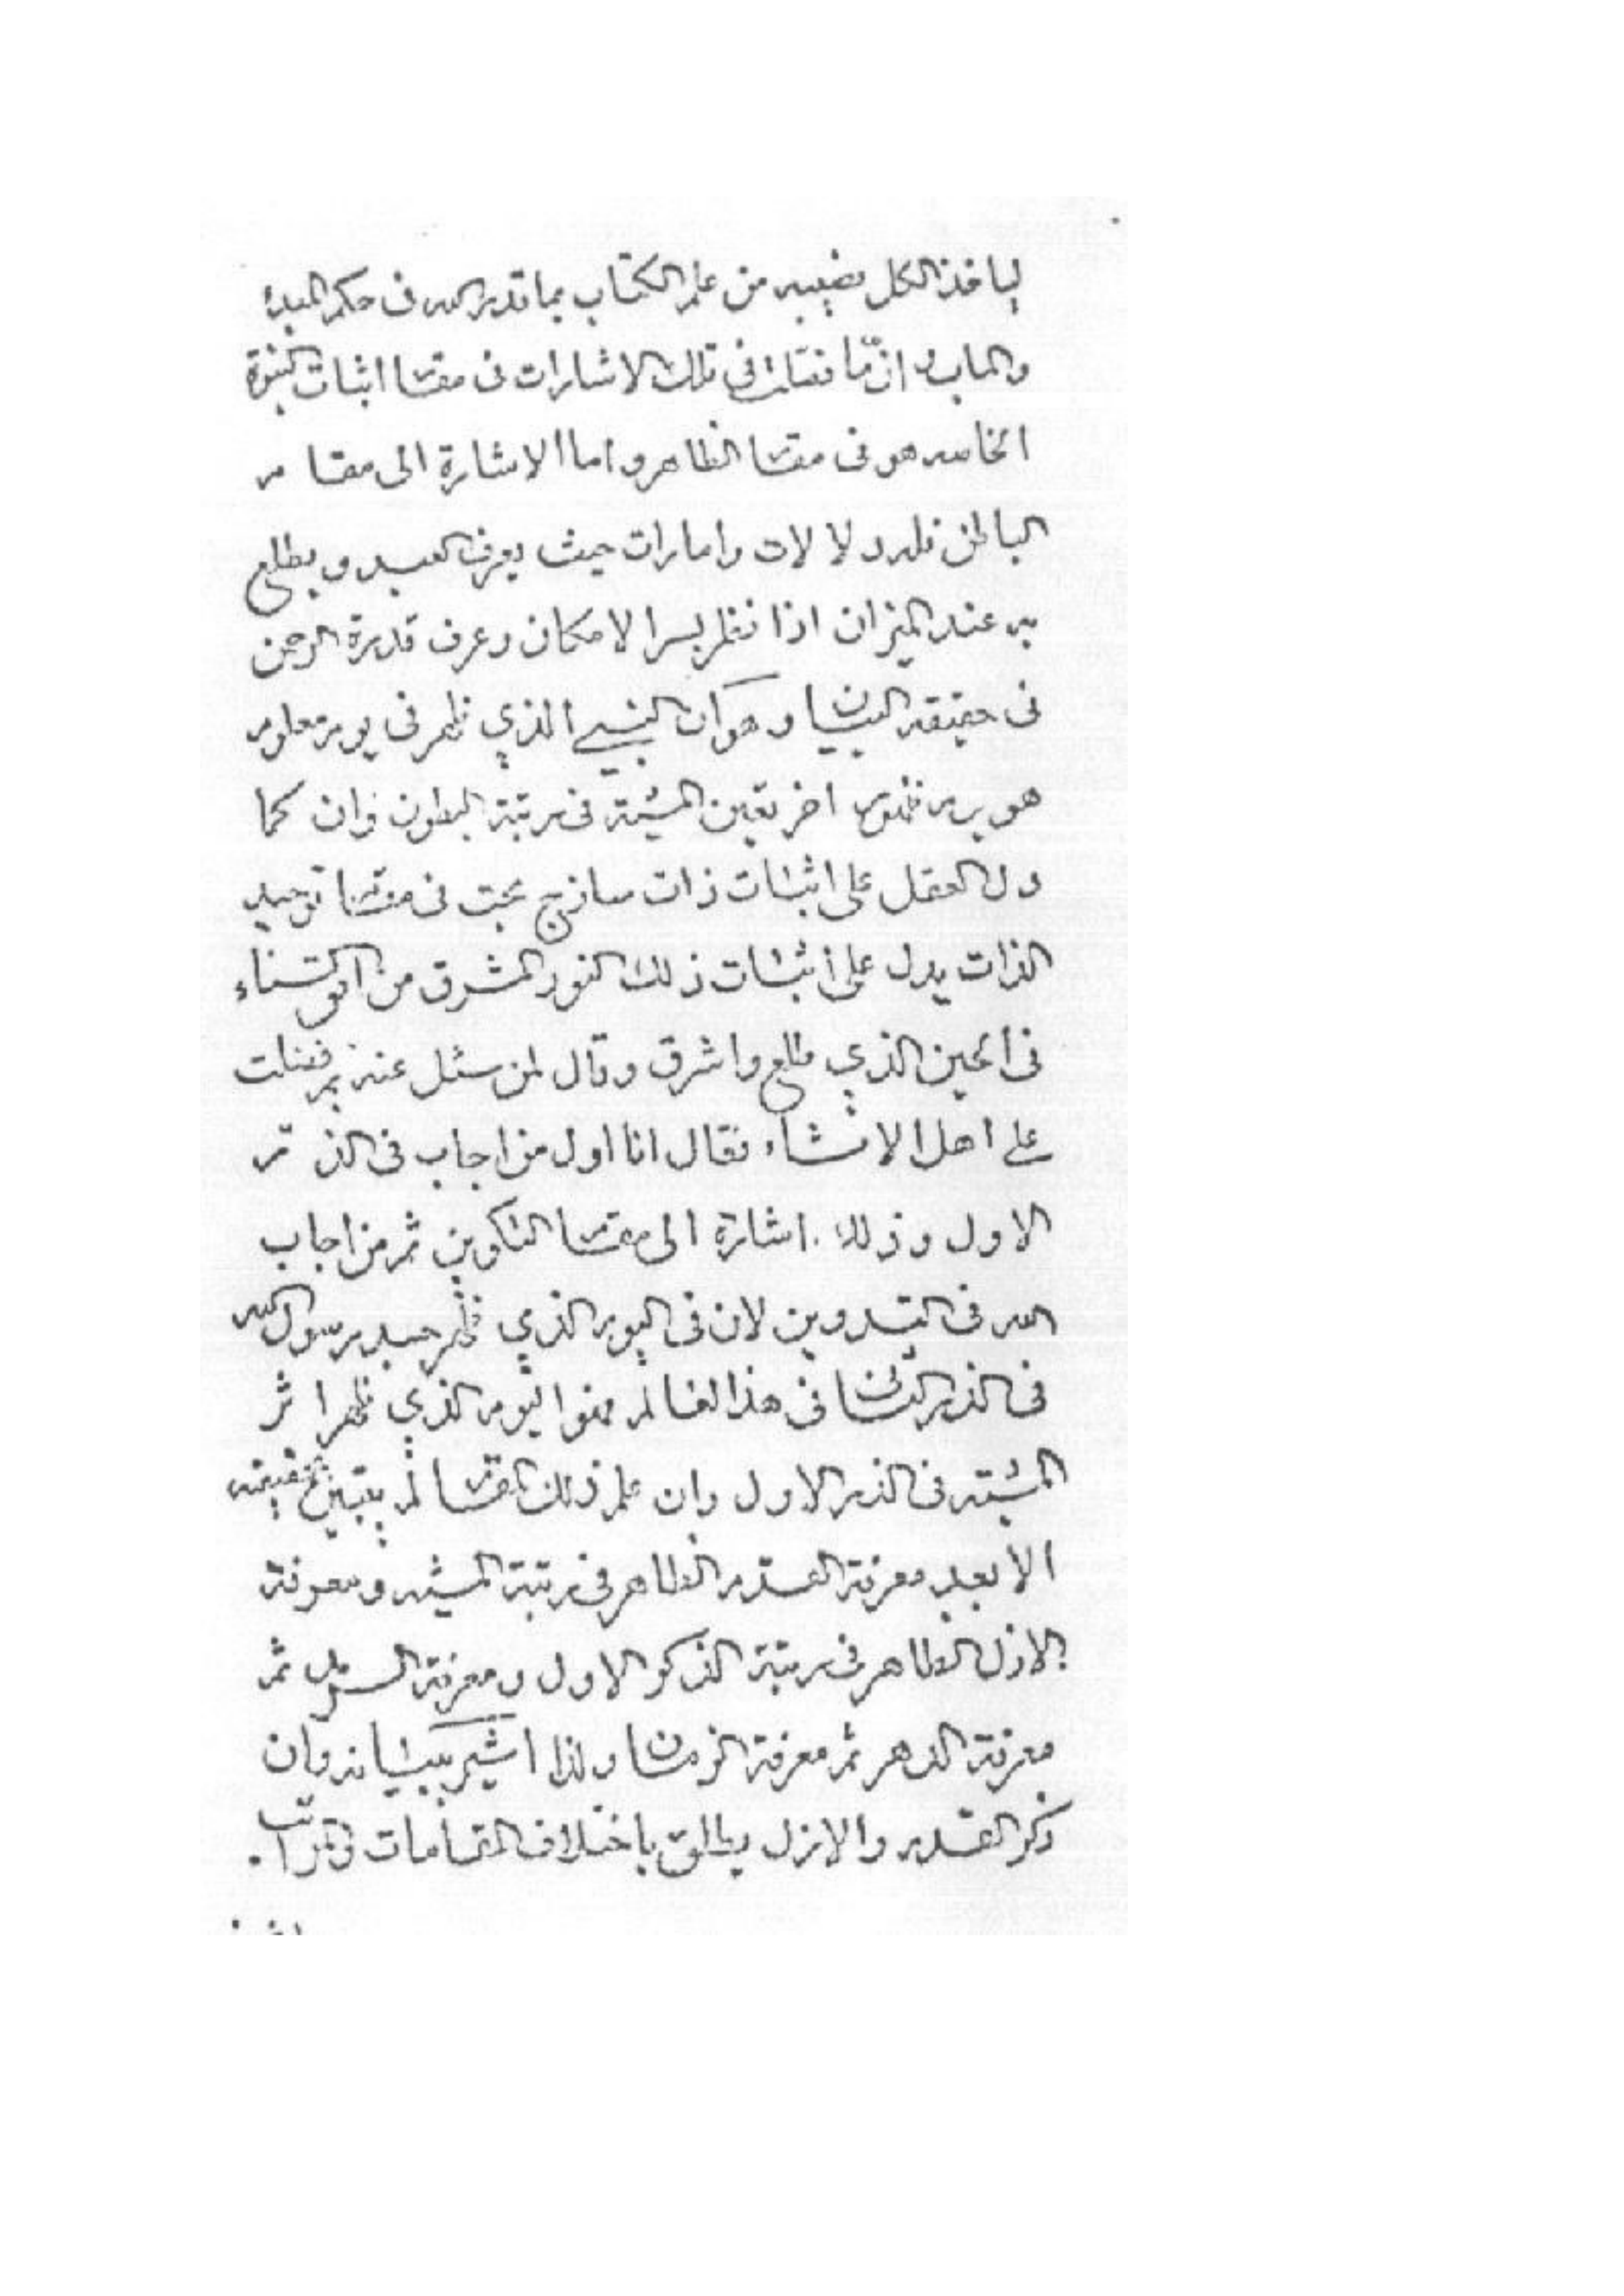 لياخذ الكل نصيبه من علم الكتاب بما قدر الله في حكم المبدء
والماب و ان ما فصلت في تلك الاشارات في مقام اثبات النبوة
الخاصه هو في مقام الظاهر و اما الاشارة الى مقام
الباطن فله دلالات و امارات حيث يعرف العبد و يطلع
به عند الميزان اذا نظر بسر الامكان و عرف قدرة الرحمن
في حقيقة البيان و هو ان النبي الذي ظهر في يوم معلوم
هو يوم ظهور اخر تعين المشية في رتبة البطون و ان كما
دل العقل على اثبات ذات ساذج بحت في مقام توحيد
الذات يدل على اثبات ذلك النور المشرق من افق السناء
في الحين الذي طلع و اشرق و قال لمن سئل عنه بم فضلت
على اهل الانشاء فقال انا اول من اجاب في الذر
الاول و ذلك اشارة الى مقام التكوين ثم من اجاب
الله في التدوين لان في اليوم الذي ظهر جسد رسول الله
في الذر الثاني في هذا العالم هو اليوم الذي ظهر اثر
المشية في الذر الاول و ان علم ذلك المقام لم يتبين بحقيقته
الا بعد معرفة القدم الظاهر في رتبة المشيه و معرفة
الازل الظاهر في رتبة الذكر الاول و معرفة السرمد ثم
معرفة الدهر ثم معرفة الزمان و لذا اشير ببيانه و ان
ذكر القدم و الازل يطلق باختلاف المقامات و المراتب